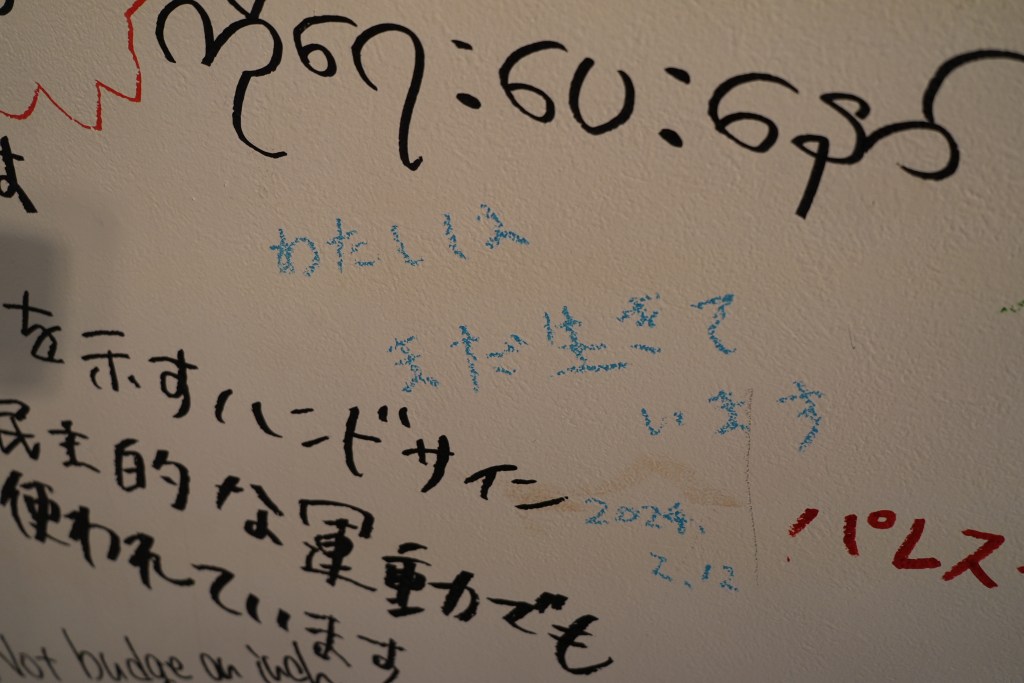 ကိုရေးပေးနော်
わたしは
まだ生きて
います
2024.
2.12
を示すハンドサイン
民主的な運動でも
使われています
パレス
Not budge an inch